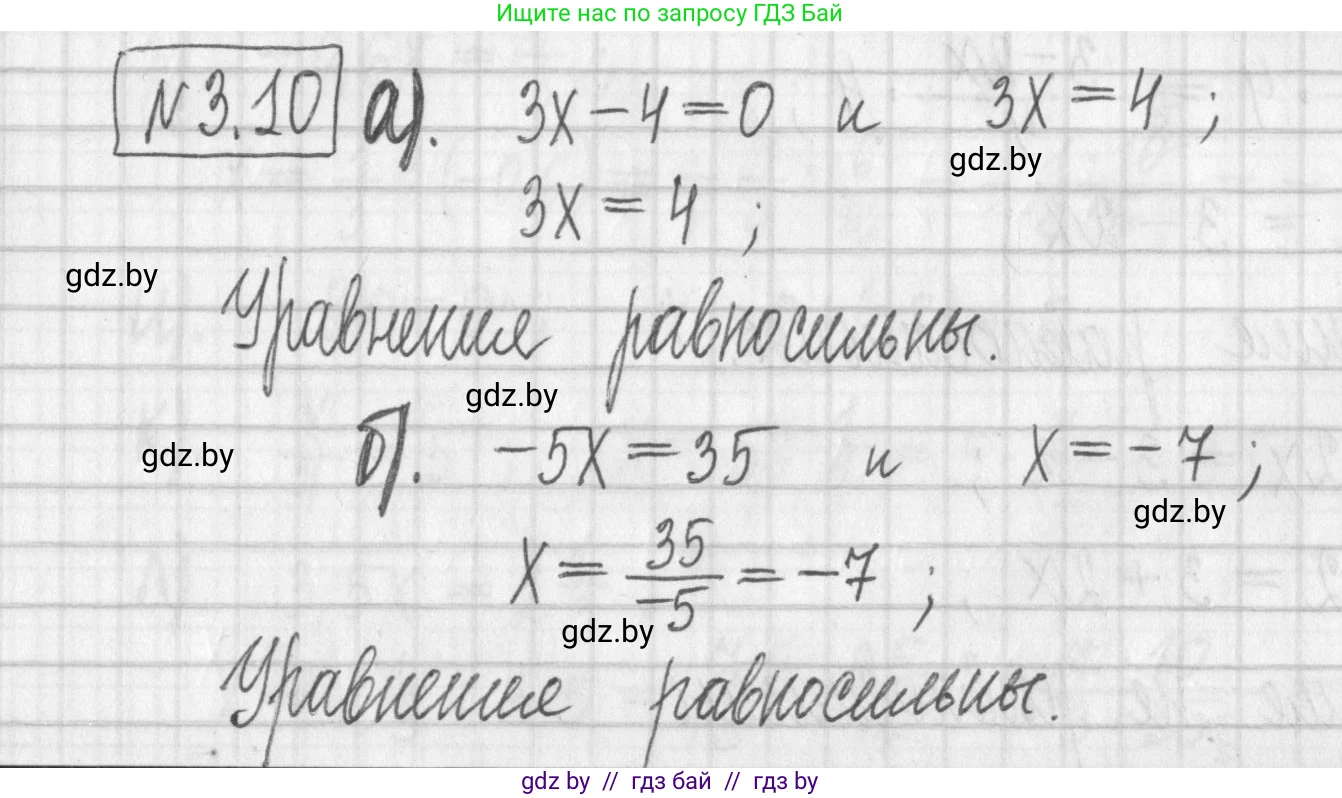 Ищите нас по запросу ГДЗ Бай
№ 3.10 а). 3x − 4 = 0 и 3x = 4 ;
gdz.by
3x = 4 ;
gdz.by
Уравнения равносильны.
gdz.by
б). −5x = 35 и x = −7 ;
gdz.by
gdz.by
x = 35/−5 = −7 ;
gdz.by
Уравнения равносильны.
gdz by // гдз бай // гдз by